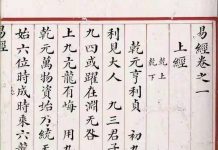 易經卷之一
上經
乾上
乾下
乾元亨利貞 初九
利見大人 九三君子
九四或躍在淵无咎
上九亢龍有悔 用九
乾元萬物資始乃統天
始六位時成時乘六龍
易經